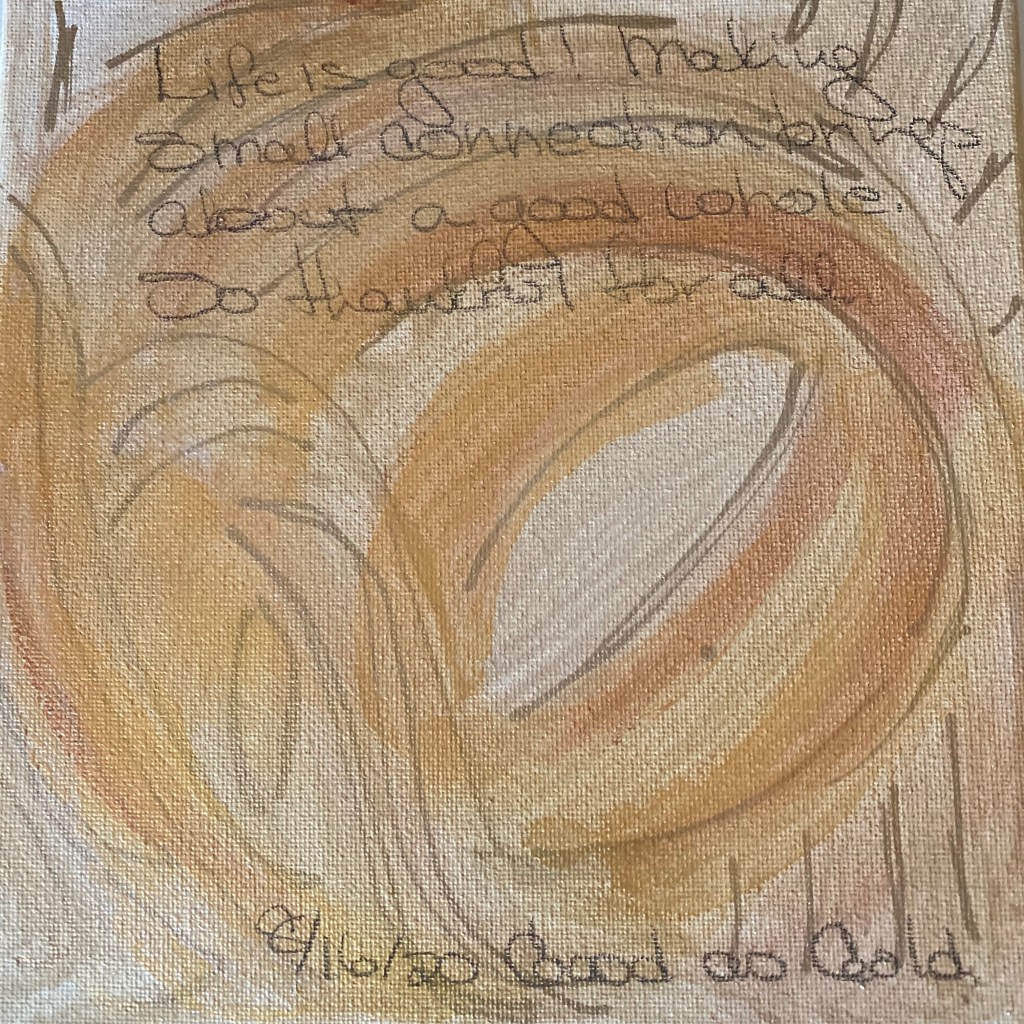 Life is good! Making
small connection brings
about a good whole.
So thankful for all
8/16/20 Good as Gold